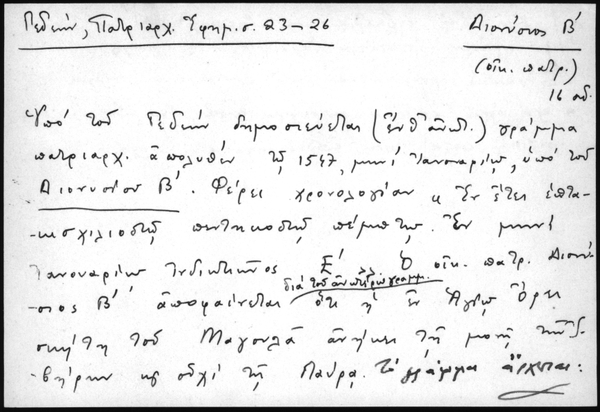 Γεδεών, Πατριαρχ. Ἐφημ. σ. 23-26
Διονύσιος Β´
(οἰκ. πατρ.)
16 αἰ.
Ὑπό τοῦ Γεδεών δημοσιεύεται (ἔνθ' ἀνωτ.) γράμμα
πατριαρχ. ἀπολυθέν τῷ 1547, μηνί Ἰανουαρίῳ, ὑπό τοῦ
Διονυσίου Β´. Φέρει χρονολογίαν « Ἐν ἔτει ἑπτα-
-κισχιλιοστῷ πεντηκοστῷ πέμπτῳ. Ἐν μηνί
Ἰανουαρίῳ Ἰνδικτιῶνος Ε´. Ὁ οἰκ. πατρ. Διονύ-
διά τοῦ ἀνωτέρω γράμμ.
-σιος Β´ ἀποφαίνεται ὅτι ἡ ἐν Ἁγίῳ Ὄρει
σκήτη τοῦ Μαγουλᾶ ἀνήκει τῇ μονῇ τῶν Ἰ-
-βήρων καί οὐχί τῇ Λαύρᾳ. Τό γράμμα ἄρχεται: